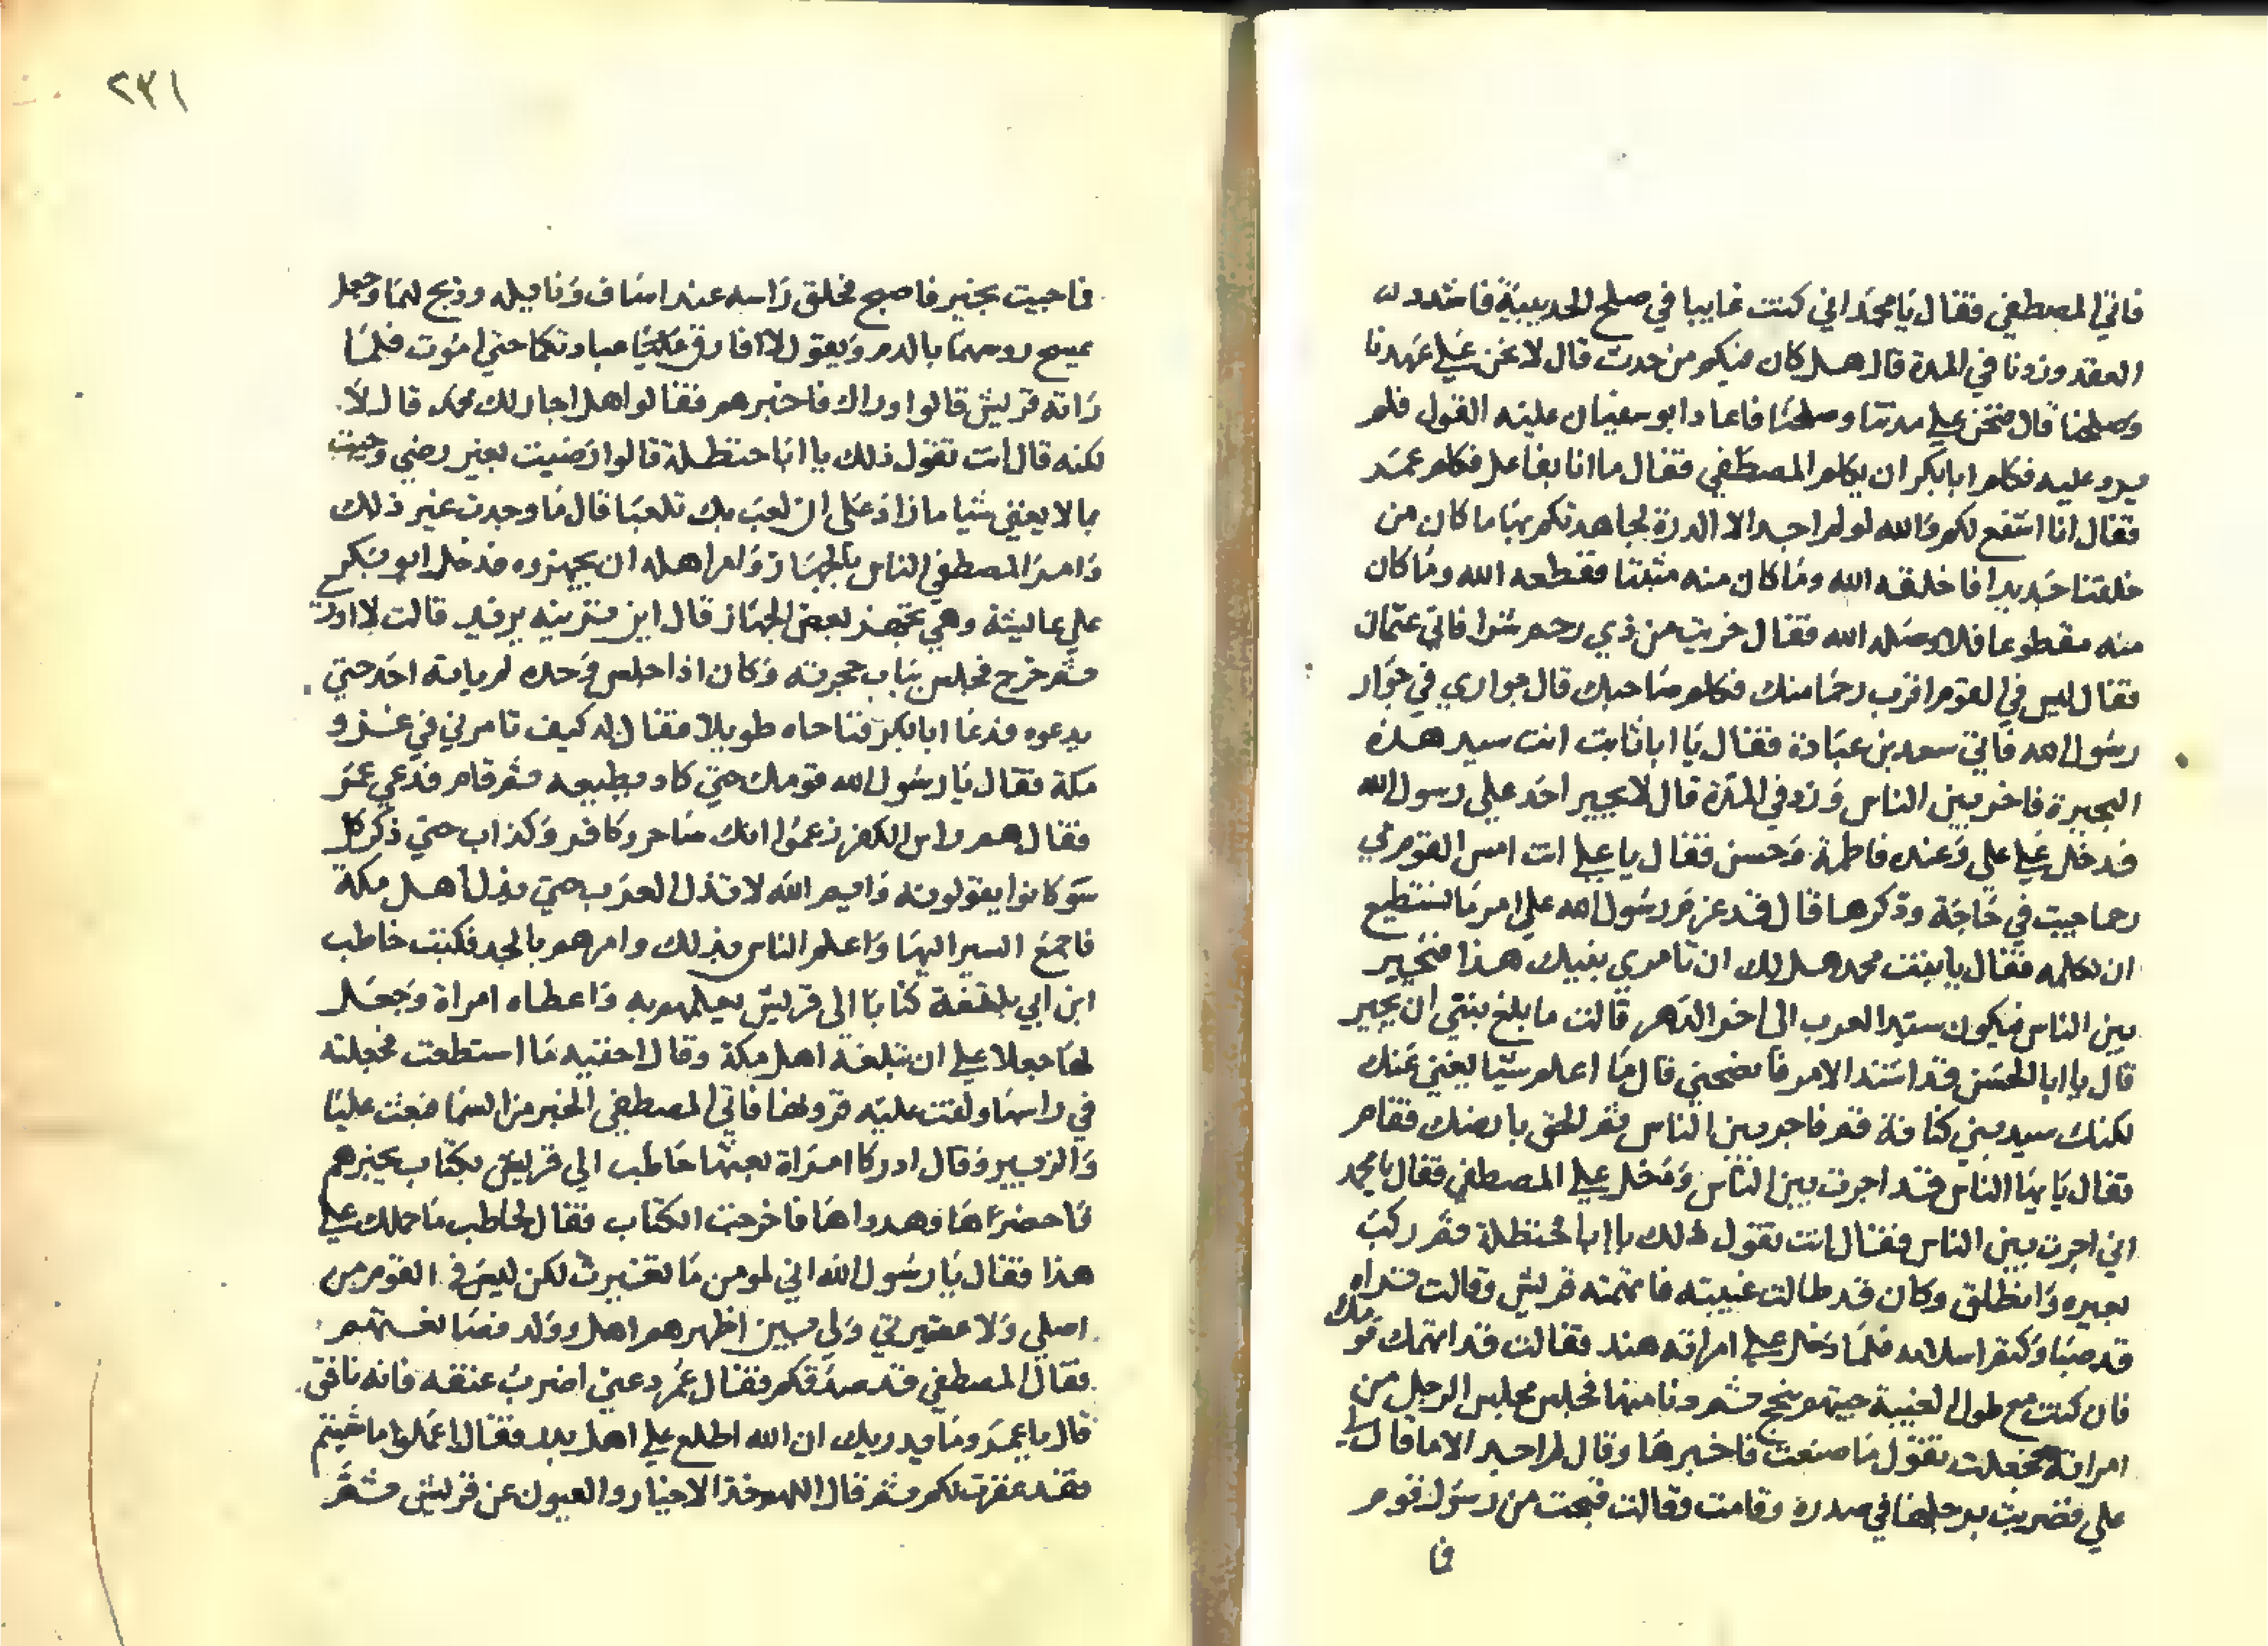 فاتي المصطفي فقال يا محمد اني كنت غايبا في صلح الحديبية فاشدد
العقد وزدنا في المدة قال هل كان فيكم من حدث قال لا نحن علي عهدنا
وصلحنا قال فنحن علي مدتنا وصلحنا فاعاد ابو سفيان عليه القول فلم
يرد عليه فكلم ابا بكر ان يكلم المصطفي فقال ما انا بفاعل فكلم عمر
فقال انا اشفع لكم والله لو لم اجد الا الدرة لجاهدتكم بها ما كان من
خلقنا جديدا فاخلقه الله وما كان منه مثبتا فقطعه الله وما كان
منه مقطوعا فلا وصله الله فقال جزيت من ذي رحم شرا فاتي عثمان
فقال ليس في القوم اقرب رحما منك فكلم صاحبك قال جواري في جوار
رسول الله فاتي سعد بن عبادة فقال يا ابا ثابت انت سيد هذه
البحيرة فاجر بين الناس وزد في المدة قال لا يجير احد علي رسول الله
فدخل علي علي وعنده فاطمة وحسن فقال يا علي انت امس القوم بي
رحما جيت في حاجة وذكرها قال قد عزم رسول الله علي امر ما نستطيع
ان نكلمه فقال يا بنت محمد هل لك ان تامري بنيك هذا فيجير
بين الناس فيكون سيد العرب الي اخر الدهر قالت ما بلغ بنيي ان يجير
قال يا ابا الحسن قد اشتد الامر فانصحني قال ما اعلم شيا يغني عنك
لكنك سيد بني كنانة فقم فاجر بين الناس ثم الحق بارضك فقام
فقال يا يها الناس قد اجرت بين الناس ودخل علي المصطفي فقال يا محمد
اني اجرت بين الناس فقال انت تقول ذلك يا ابا حنظلة ثم ركب
بعيره وانطلق وكان قد طالت غيبته فاتهمته قريش وقالت قد اراه
قد صبا وكتم اسلامه فلما دخل علي امراته هند فقالت قد اتهمك قومك
فان كنت مع طول الغيبة جيتهم بنجح ثم دنا منها فجلس مجلس الرجل من
امراته فجعلت تقول ما صنعت فاخبرها وقال لم اجد الا ما قال لي
علي فضربت برجلها في صدره وقامت وقالت قبحت من رسول قوم
فا
٢٣١
فاجيت بخير فاصبح فحلق راسه عند اساف ونايله وذبح لهما وجعل
يمسح روسهما بالدم ويقول لا افارق عبادتكما حتي اموت فلما
راته قريش قالوا وراك فاخبرهم فقالوا هل اجاز لك محمد قال لا
لكنه قال انت تقول ذلك يا ابا حنظلة قالوا رضيت بغير رضي وجيت
بما لا يغني شيا ما زاد علي ان لعب بك تلعبا قال ما وجدت غير ذلك
وامر المصطفي الناس بالجهاز وامر اهله ان يجهزوه فدخل ابو بكر
علي عايشة وهي تجهز بعض الجهاز قال اين ترينه يريد قالت لا ادري
ثم خرج فجلس بباب حجرته وكان اذا جلس وحده لم ياته احد حتي
يدعوه فدعا ابا بكر فناجاه طويلا فقال له كيف تامرني في غزو
مكة فقال يا رسول الله قومك حتي كاد يطيعه ثم قام فدعي عمر
فقال هم راس الكفر زعموا انك ساحر وكافر وكذاب حتي ذكر كل
سو كانوا يقولونه وايم الله لا تذل العرب حتي يذل اهل مكة
فاجمع السير اليها واعلم الناس بذلك وامرهم بالجد فكتب حاطب
ابن ابي بلتعة كتابا الي قريش يعلمهم به واعطاه امراة وجعل
لها جعلا علي ان تبلغه اهل مكة وقال اخفيه ما استطعت فجعلته
في راسها ولفت عليه قرونها فاتي المصطفي الخبر من السما فبعث عليا
والزبير وقال ادركا امراة بعثها حاطب الي قريش بكتاب يخبرهم
فاحضراها وهدداها فاخرجت الكتاب فقال لحاطب ما حملك علي
هذا فقال يا رسول الله اني لمومن ما تغيرت لكن ليس في القوم من
اصلي ولا عشيرتي ولي بين اظهرهم اهل وولد فصانعتهم
فقال المصطفي قد صدقكم فقال عمر دعني اضرب عنقه فانه نافق
قال يا عمر وما يدريك ان الله اطلع علي اهل بدر فقال اعملوا ما شيتم
فقد غفرت لكم ثم قال اللهم خذ الاخبار والعيون عن قريش ثم